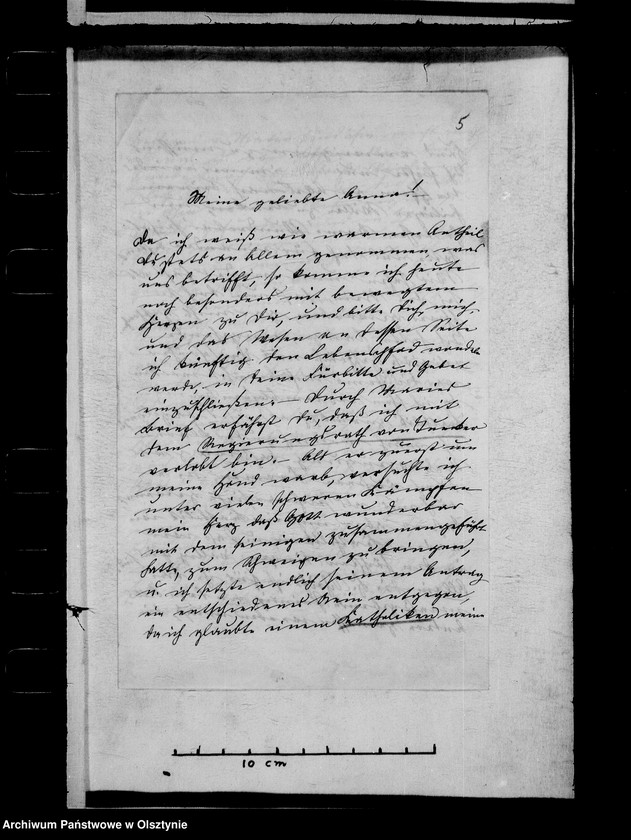 5
Meine geliebte Anna!
Da ich weiß wie warmen Antheil
Du stets an Allem genommen, was
uns betrifft, so komme ich heute
noch besonders mit bewegtem
Herzen zu Dir, und bitte Dich, mich
und das Wesen an dessen Seite
ich künftig den Lebenspfad wandeln
werde, in Deine Fürbitte und Gebet
einzuschließen. – Durch Maries
Brief erfährst Du, daß ich mit
dem Regierungsrath von
verlobt bin. – Als er zuerst um
meine Hand warb, versuchte ich
unter vielen schweren Kämpfen
mein Herz daß Gott wunderbar
mit dem seinigen zusammengeführt
hatte, zum Schweigen zu bringen,
u. ich setzte endlich seinem Antrag
ein entschiedenes Nein entgegen,
da ich glaubte einem Katholiken meine
10 cm
Archiwum Państwowe w Olsztynie